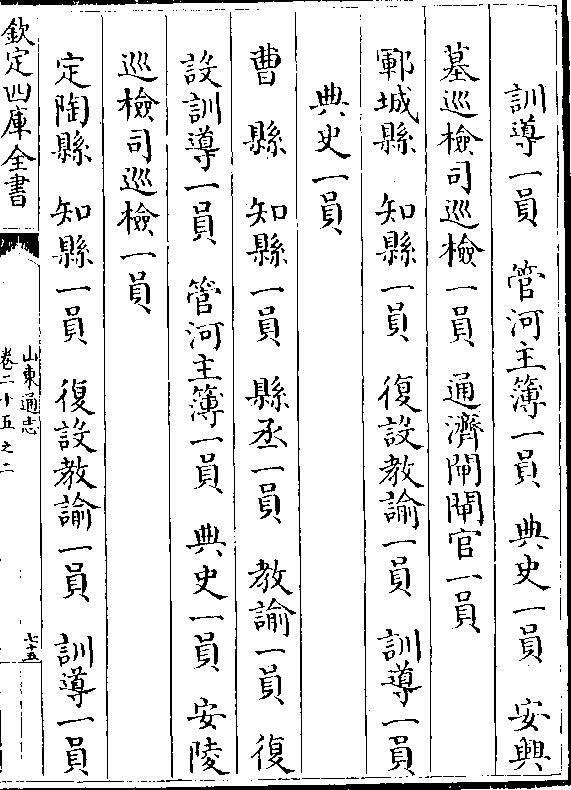 訓導一員　管河主簿一員　典史一員　安興
墓巡檢司巡檢一員　通濟閘閘官一員
鄆城縣　知縣一員　復設教諭一員　訓導一員
典史一員
曹縣　知縣一員　縣丞一員　教諭一員　復
設訓導一員　管河主簿一員　典史一員　安陵
巡檢司巡檢一員
定陶縣　知縣一員　復設教諭一員　訓導一員
欽定四庫全書
山東通志
卷二十五之二
七十五